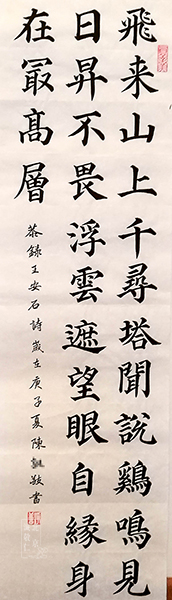 飛来山上千尋塔聞説鷄鳴見
日昇不畏浮雲遮望眼自緣身
在冣髙層
恭録王安石詩歲在庚子夏陳敬書